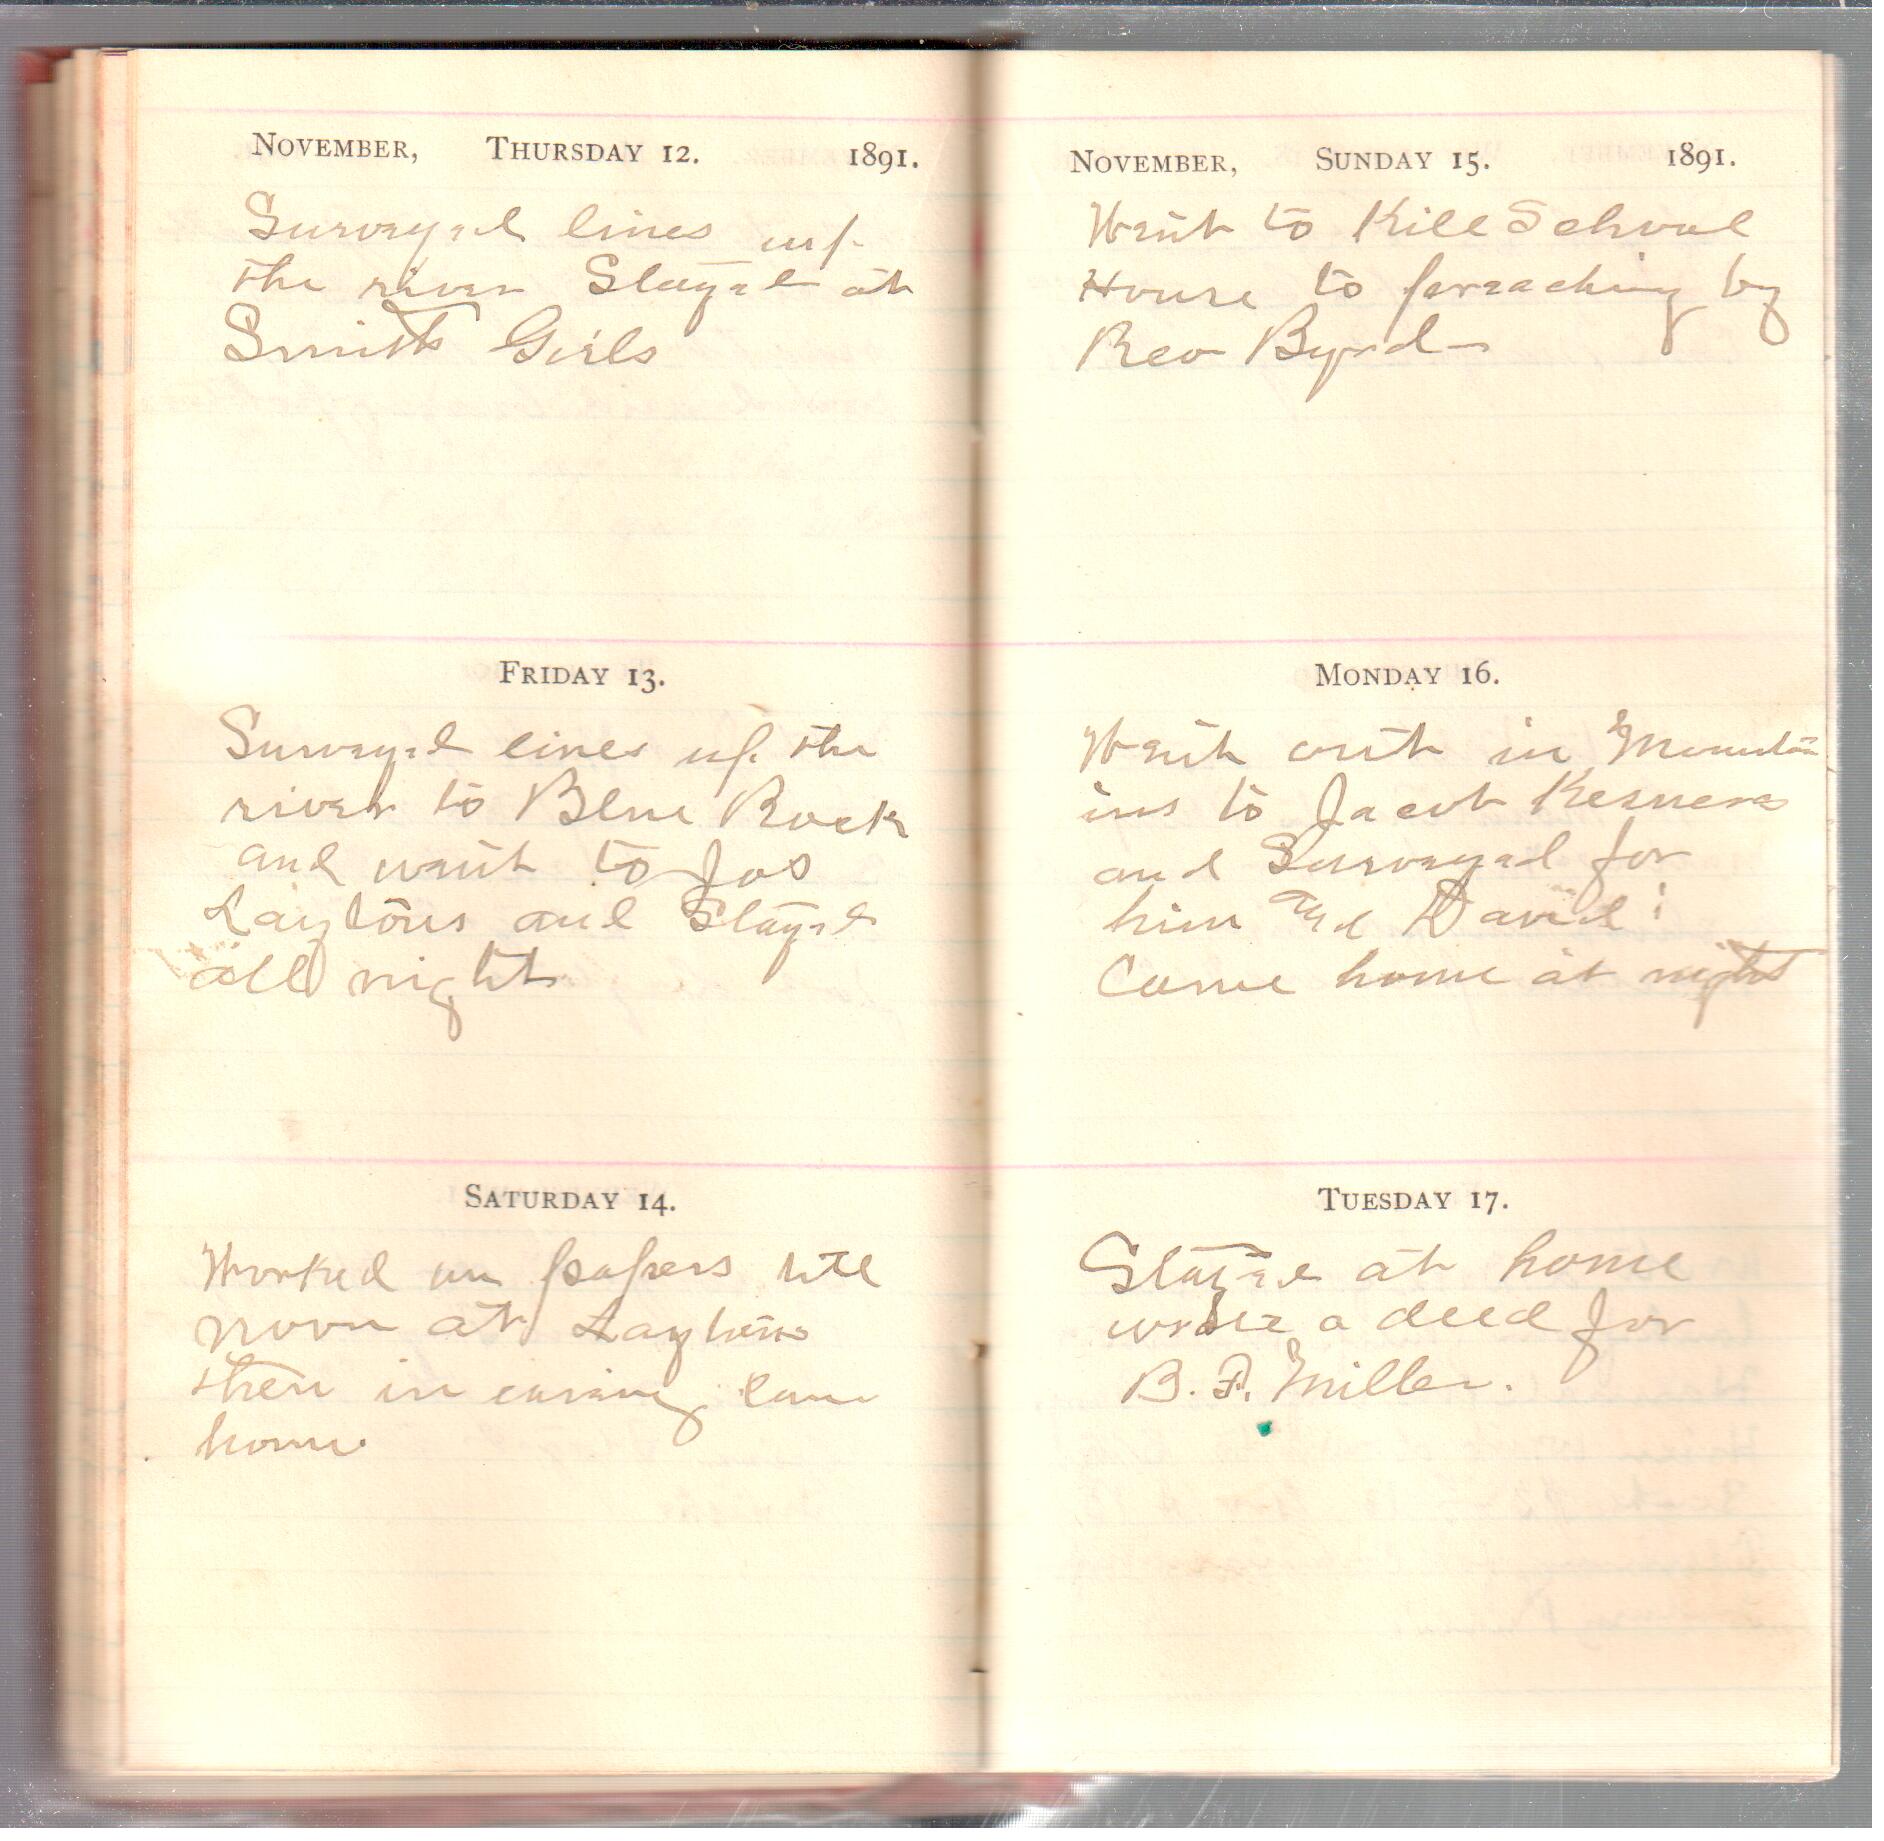 NOVEMBER, THURSDAY 12. 1891.
Surveyed lines up
the river Stayed at
Smith Girls
FRIDAY 13.
Surveyed lines up the
river to Blue Rock
and went to Jos
Laytons and Stayed
all night
SATURDAY 14.
Worked on papers till
noon at Laytons
then in evning came
home.
NOVEMBER, SUNDAY 15. 1891.
Went to Kill School
House to preaching by
Rev Byrd
MONDAY 16.
Went out in Mounta
ins to Jacob Kesners
and Surveyed for
him and David
Came home at night
TUESDAY 17.
Stayed at home
wrote a deed for
B. F. Miller.